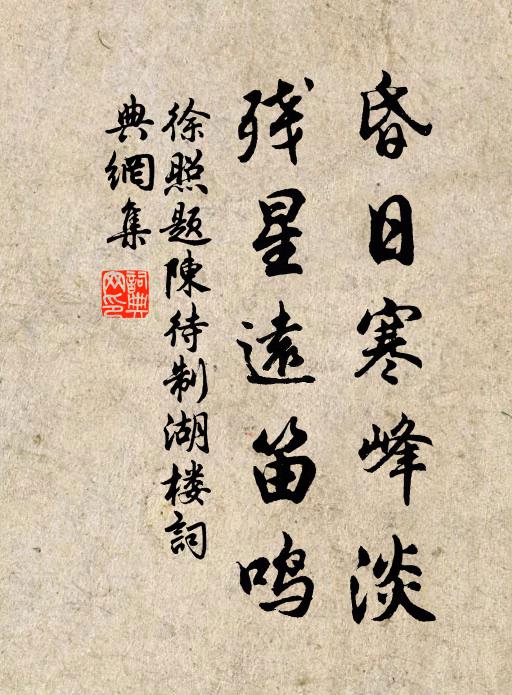 昏日寒峰淡
残星遠笛鸣
徐照题陳待制湖楼詞
典網集
詞典
网印